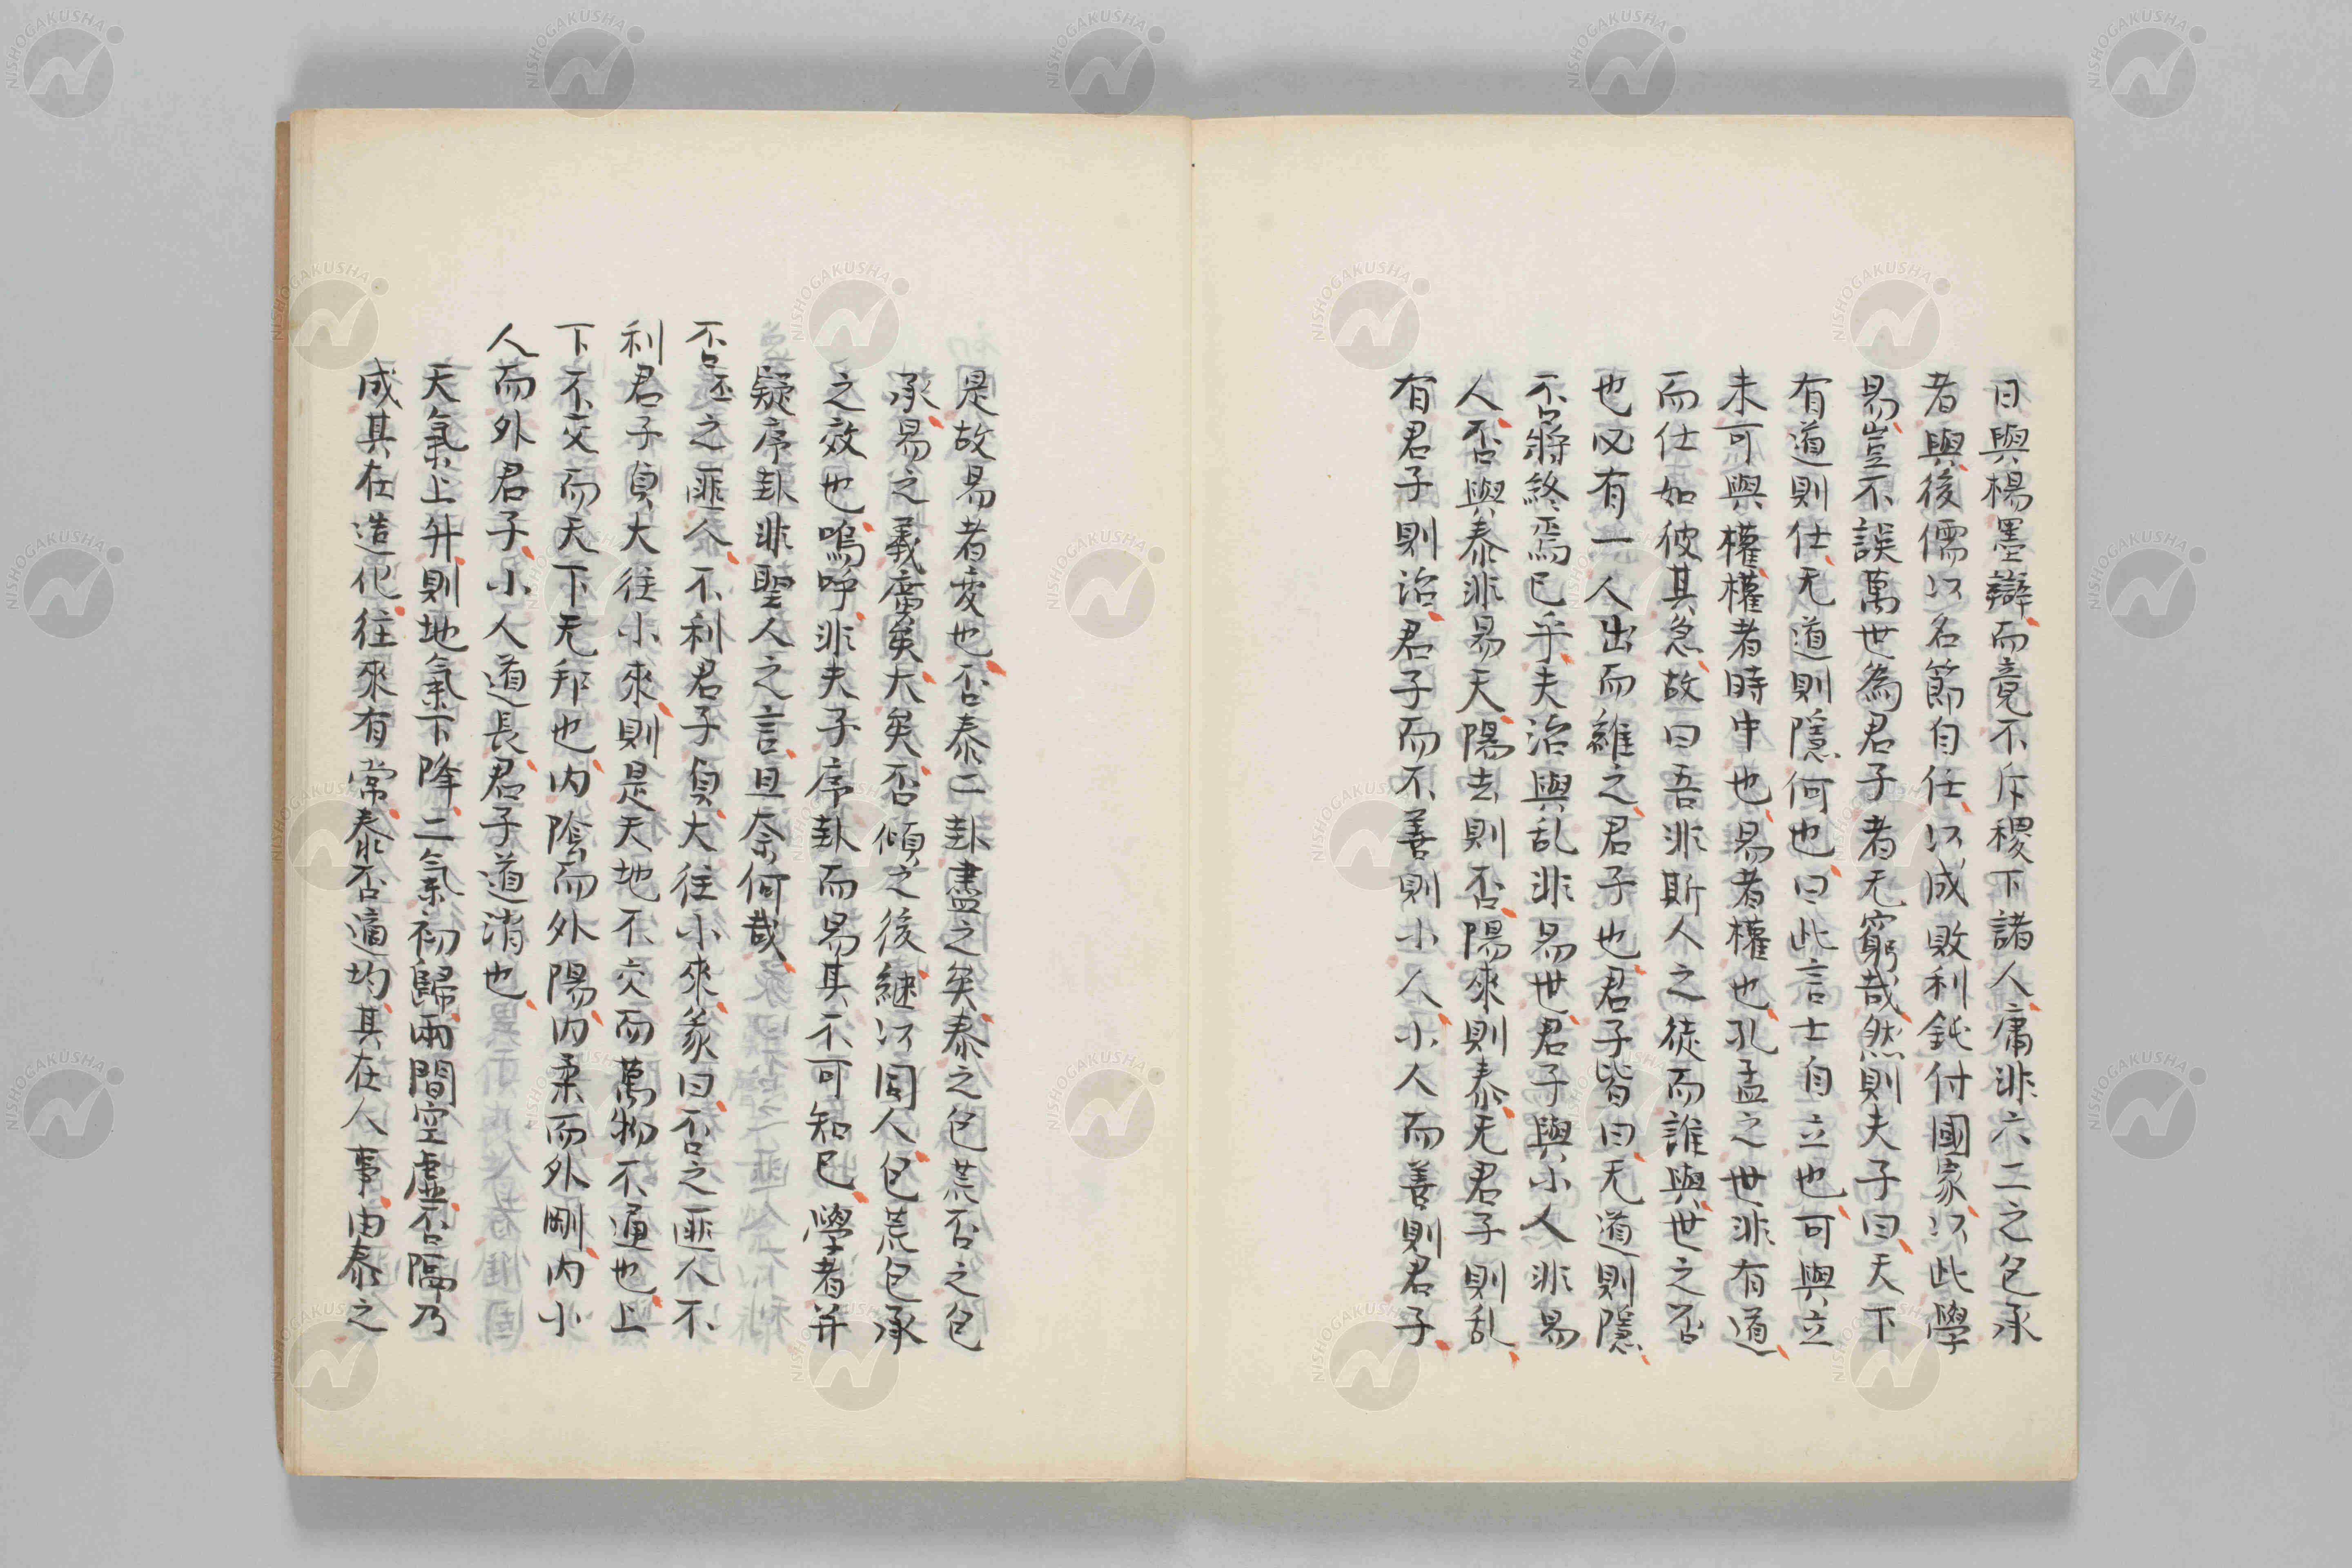 日與楊墨辯而竟不斥稷下諸人庸非六二之包承
者與後儒以名節自任以成敗利鈍付國家以此學
易豈不誤萬世為君子者无窮哉然則夫子曰天下
有道則仕无道則隱何也曰此言士自立也可與立
未可與權權者時中也易者權也孔孟之世非有道
而仕如彼其急故曰吾非斯人之徒而誰與世之否
也必有一人出而維之君子也君子皆曰无道則隱
否將終焉已乎夫治與乱非易世君子與小人非易
人否與泰非易天陽去則否陽來則泰无君子則乱
有君子則治君子而不善則小人小人而善則君子
是故易者変也否泰二卦盡之矣泰之包荒否之包
承易之義廣矣大矣否傾之後継以同人包荒包承
之效也嗚呼非夫子序卦而易其不可知已學者并
疑序卦非聖人之言且奈何哉
否否之匪人不利君子貞大往小來彖曰否之匪人不
利君子貞大往小來則是天地不交而萬物不通也上
下不交而天下无邦也内陰而外陽内柔而外剛内小
人而外君子小人道長君子道消也
天氣上升則地氣下降二氣初歸兩間空虛否隔乃
成其在造化往來有常泰否適均其在人事由泰之
NISHOGAKUSHA